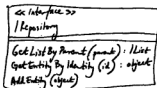 << Interface >>
IRepository
GetListByParent (parent) : IList
GetEntityByIdentity (id) : object
AddEntity (object)